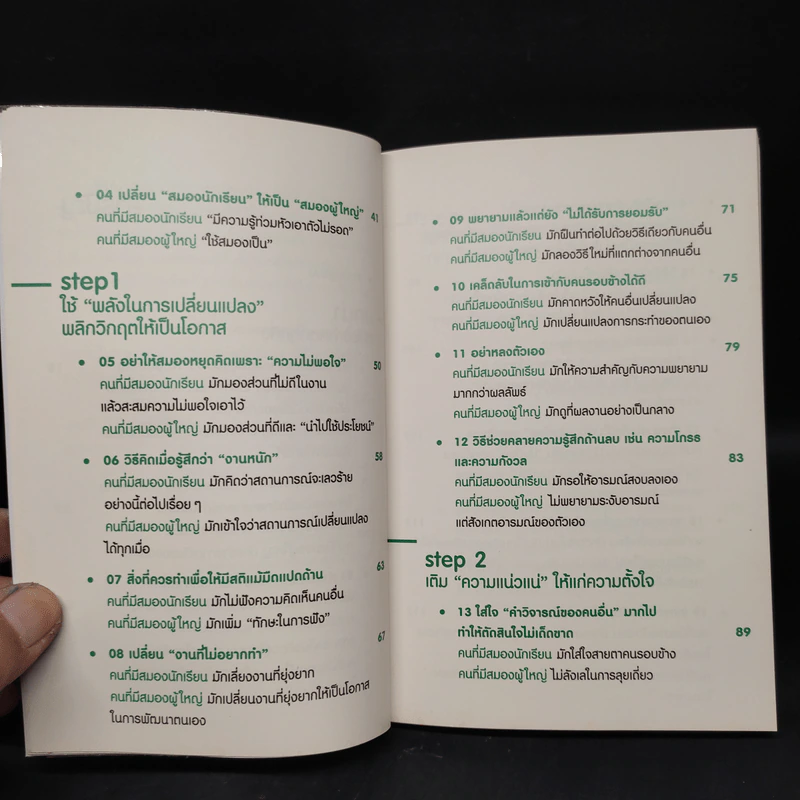 • 04 เปลี่ยน “สมองนักเรียน” ให้เป็น “สมองผู้ใหญ่” 41
คนที่มีสมองนักเรียน “มีความรู้ท่วมหัวเอาตัวไม่รอด”
คนที่มีสมองผู้ใหญ่ “ใช้สมองเป็น”
step1
ใช้ “พลังในการเปลี่ยนแปลง”
พลิกวิกฤตให้เป็นโอกาส
• 05 อย่าให้สมองหยุดคิดเพราะ “ความไม่พอใจ” 50
คนที่มีสมองนักเรียน มักมองส่วนที่ไม่ดีในงาน
แล้วสะสมความไม่พอใจเอาไว้
คนที่มีสมองผู้ใหญ่ มักมองส่วนที่ดีและ “นำไปใช้ประโยชน์”
• 06 วิธีคิดเมื่อรู้สึกว่า “งานหนัก” 58
คนที่มีสมองนักเรียน มักคิดว่าสถานการณ์จะเลวร้าย
อย่างนี้ต่อไปเรื่อย ๆ
คนที่มีสมองผู้ใหญ่ มักเข้าใจว่าสถานการณ์เปลี่ยนแปลง
ได้ทุกเมื่อ
• 07 สิ่งที่ควรทำเพื่อให้มีสติแม้มืดแปดด้าน 63
คนที่มีสมองนักเรียน มักไม่ฟังความคิดเห็นคนอื่น
คนที่มีสมองผู้ใหญ่ มักเพิ่ม “ทักษะในการฟัง”
• 08 เปลี่ยน “งานที่ไม่อยากทำ” 67
คนที่มีสมองนักเรียน มักเลี่ยงงานที่ยุ่งยาก
คนที่มีสมองผู้ใหญ่ มักเปลี่ยนงานที่ยุ่งยากให้เป็นโอกาส
ในการพัฒนาตนเอง
• 09 พยายามแล้วแต่ยัง “ไม่ได้รับการยอมรับ” 71
คนที่มีสมองนักเรียน มักฝืนทำต่อไปด้วยวิธีเดียวกับคนอื่น
คนที่มีสมองผู้ใหญ่ มักลองวิธีใหม่ที่แตกต่างจากคนอื่น
• 10 เคล็ดลับในการเข้ากับคนรอบข้างได้ดี 75
คนที่มีสมองนักเรียน มักคาดหวังให้คนอื่นเปลี่ยนแปลง
คนที่มีสมองผู้ใหญ่ มักเปลี่ยนแปลงการกระทำของตนเอง
• 11 อย่าหลงตัวเอง 79
คนที่มีสมองนักเรียน มักให้ความสำคัญกับความพยายาม
มากกว่าผลลัพธ์
คนที่มีสมองผู้ใหญ่ มักดูที่ผลงานอย่างเป็นกลาง
• 12 วิธีช่วยคลายความรู้สึกด้านลบ เช่น ความโกรธ
และความกังวล 83
คนที่มีสมองนักเรียน มักรอให้อารมณ์สงบลงเอง
คนที่มีสมองผู้ใหญ่ ไม่พยายามระงับอารมณ์
แต่สังเกตอารมณ์ของตัวเอง
step 2
เติม “ความแน่วแน่” ให้แก่ความตั้งใจ
• 13 ใส่ใจ “คำวิจารณ์ของคนอื่น” มากไป
ทำให้ตัดสินใจไม่เด็ดขาด 89
คนที่มีสมองนักเรียน มักใส่ใจสายตาคนรอบข้าง
คนที่มีสมองผู้ใหญ่ ไม่ลังเลในการลุยเดี่ยว